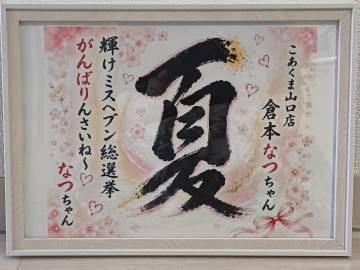 こあくま山口店
倉本なつちゃん
夏
輝けミスヘブン総選挙
がんばりんさいね〜♡
なつちゃん